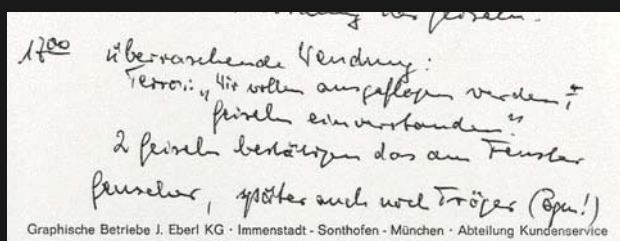 der Geiseln.
17⁰⁰ überraschende Wendung:
Terror.: "Wir wollen ausgeflogen werden,
Geiseln einverstanden."
2 Geiseln bestätigen das am Fenster
Genscher, später auch noch Tröger (Ogn!)
Graphische Betriebe J. Eberl KG · Immenstadt - Sonthofen - München · Abteilung Kundenservice